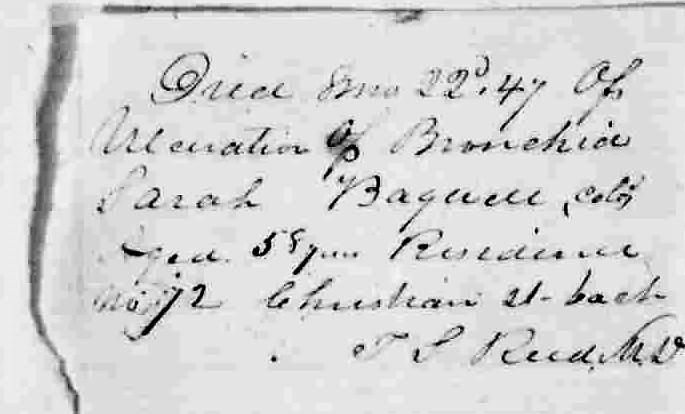 Died 8mo 22d, 47 Of
Ulceration of Bronchia
Sarah Bagwell, cold
Aged 55 years Residence
No 72 Christian st - back
T S Reed, M.D